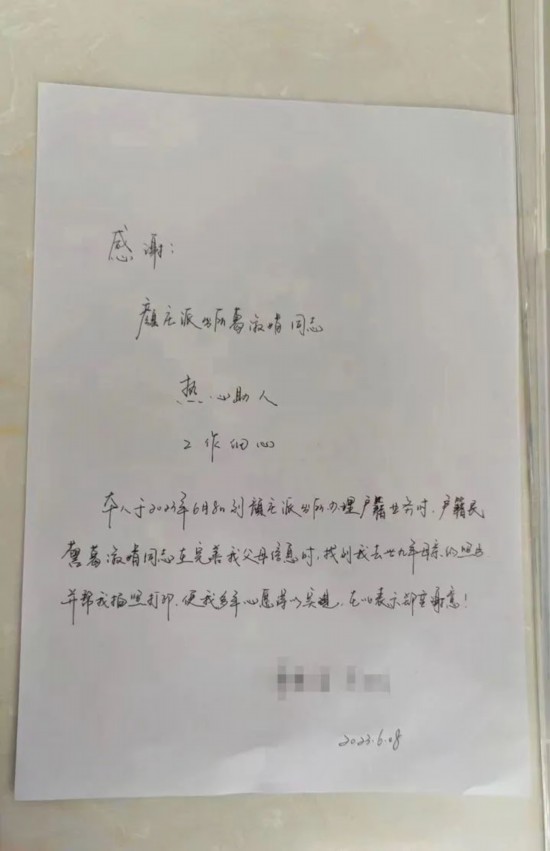 感谢：
颜庄派出所葛淑晴同志
热心助人
工作细心
本人于2023年6月8日到颜庄派出所办理户籍业务时，户籍民
警葛淑晴同志在完善我父母信息时，找到我去世九年母亲的照
并帮我拍照打印，使我多年心愿得以实现，在此表示衷谢意！
2023.6.08